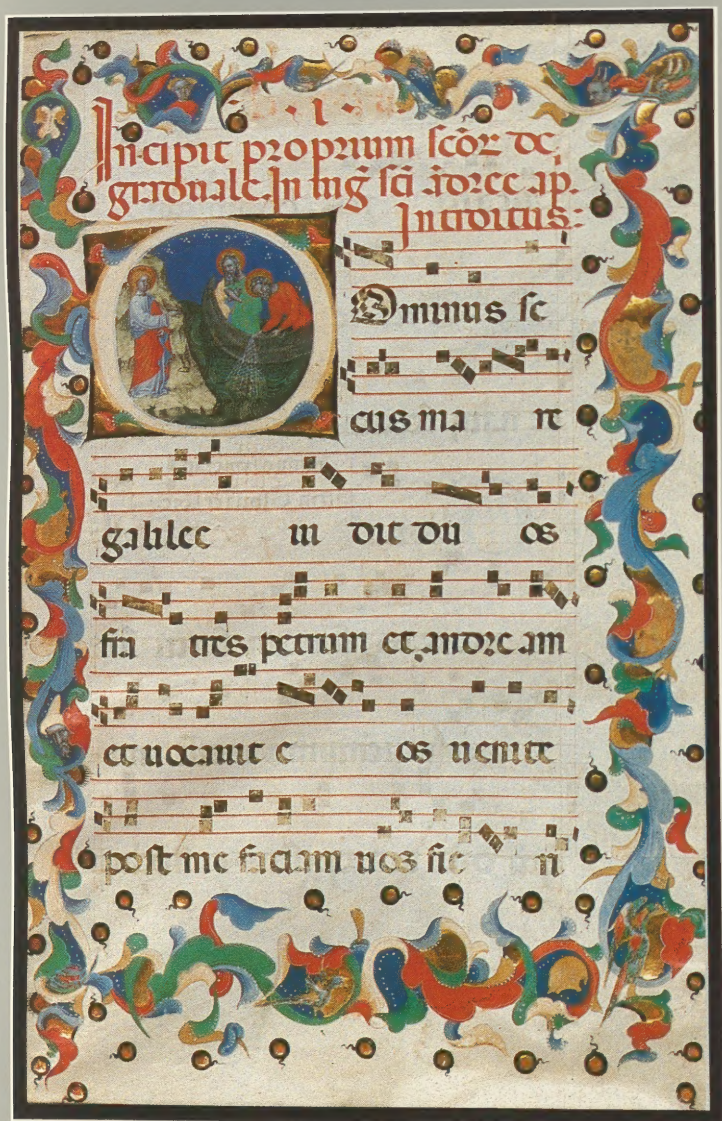 ·I·
Incipit proprium scõr de
graduali. In uig̃ sc̃i ãdree ap.
Introitus:
Dominus se
cus ma re
galilee ui dit du os
fra tres petrum et andre am
et uocauit e os uenite
post me faciam uos fie ri